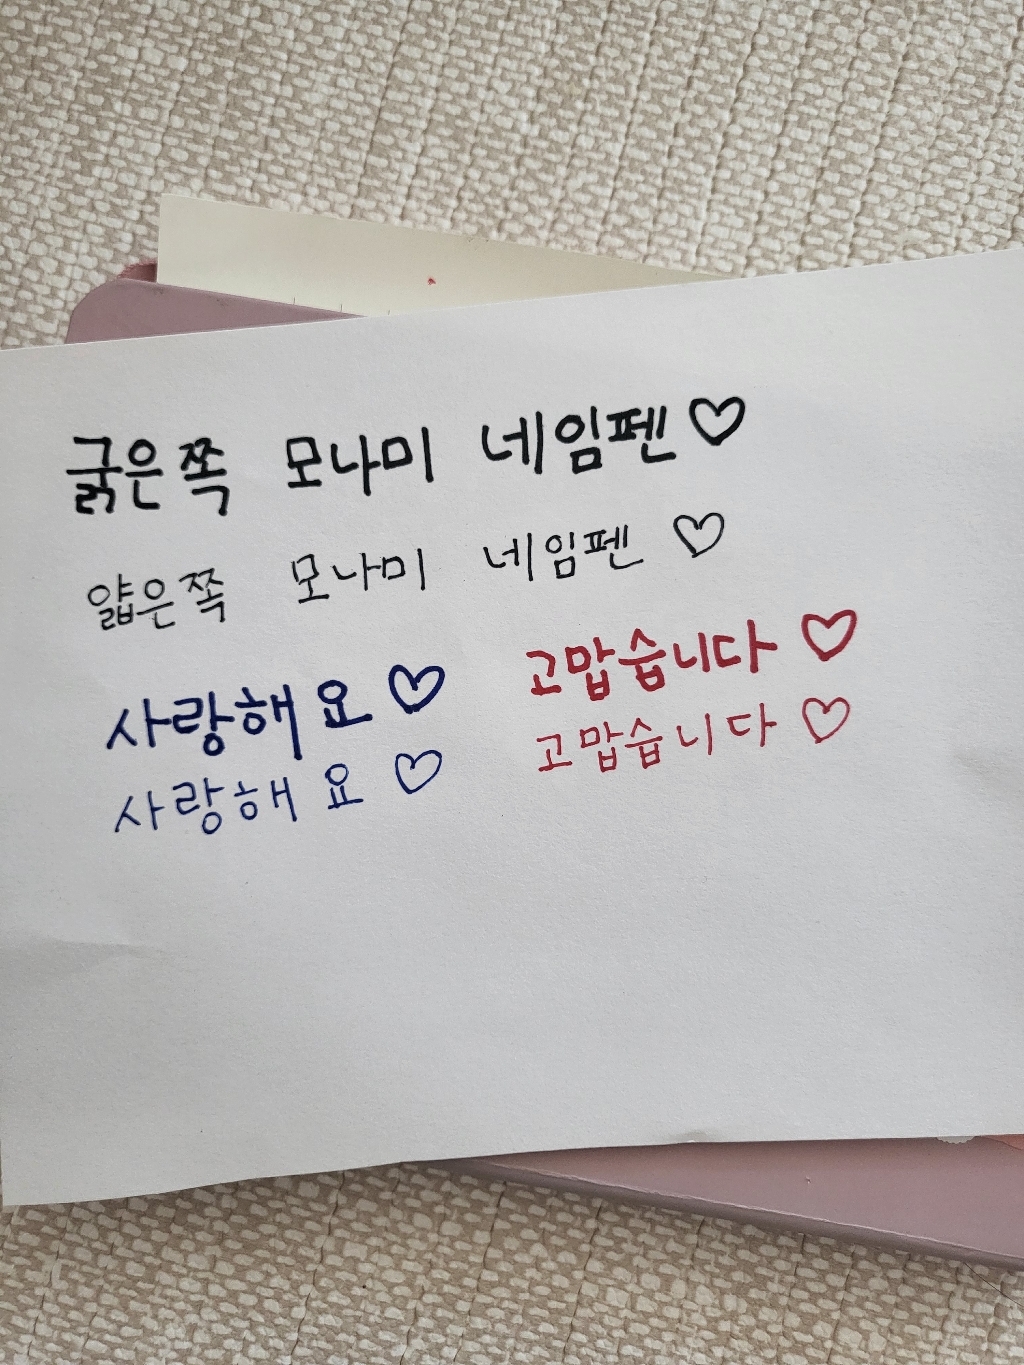 굵은쪽 모나미 네임펜♡
얇은쪽 모나미 네임펜 ♡
사랑해요♡
사랑해요♡
고맙습니다♡
고맙습니다♡